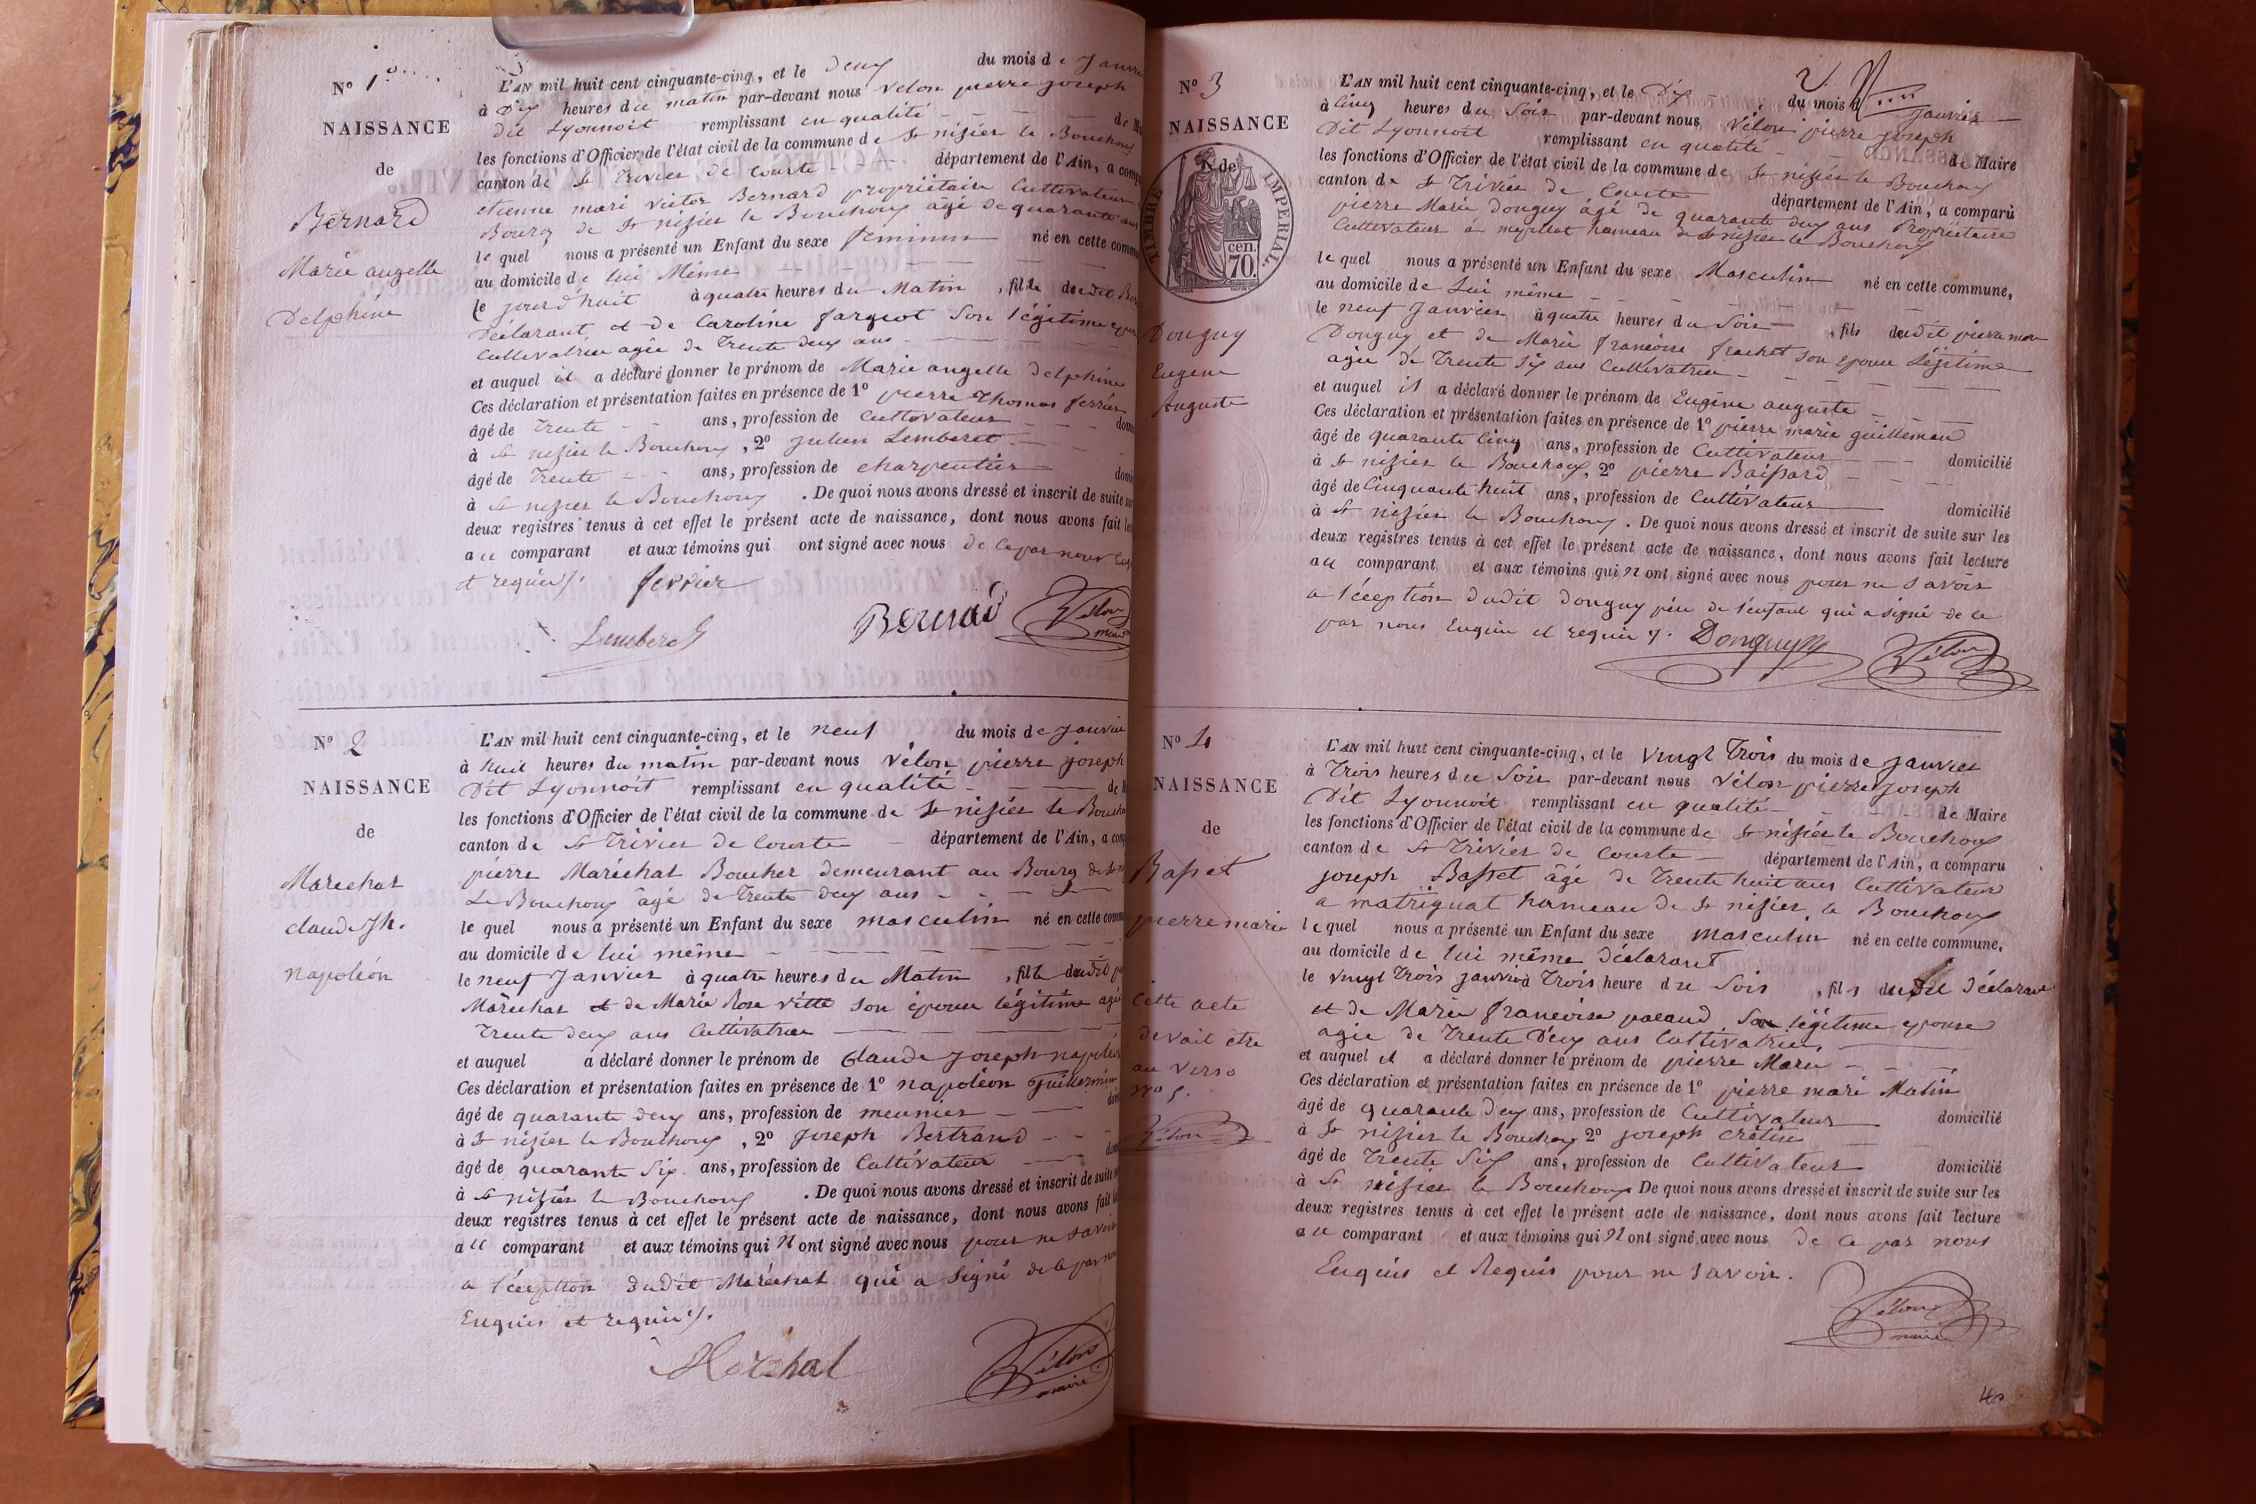 N° 1er
NAISSANCE
de
Bernard
Marie angelle
Delphine
L'AN mil huit cent cinquante-cinq, et le deux du mois de Janvier
à Dix heures du matin par-devant nous Vélon pierre joseph
Dit Lyonnoit remplissant en qualité de
les fonctions d'Officier de l'état civil de la commune de St nizier le Bouchoux
canton de St Trivier de Courte département de l'Ain, a comp
etienne mari victor Bernard propriétaire Cultivateur
Bourg de St nizier le Bouchoux âgé de quarante ans
lequel nous a présenté un Enfant du sexe feminin né en cette comm
au domicile de lui Même
le jourd'huit à quatre heures du Matin, fille dudit Ber
Déclarant et de Caroline fargeot Son légitime epou
Cultivatrice agée de Trente deux ans
et auquel il a déclaré donner le prénom de Marie angelle Delphine
Ces déclaration et présentation faites en présence de 1° pierre Thomas ferrier
âgé de Trente ans, profession de Cultivateur dom
à St nizier le Bouchoux, 2° Julien Lemberet
âgé de Trente ans, profession de charpentier domi
à St nizier le Bouchoux. De quoi nous avons dressé et inscrit de suite sur
deux registres tenus à cet effet le présent acte de naissance, dont nous avons fait lec
au comparant et aux témoins qui ont signé avec nous de ce par nous
et requis. ferrier
Lemberet
Bernard
Vélon
maire
N° 2
NAISSANCE
de
Marechat
claude Jh.
napoléon
L'AN mil huit cent cinquante-cinq, et le neuf du mois de Janvier
à huit heures du matin par-devant nous Vélon pierre joseph
Dit Lyonnoit remplissant en qualité de
les fonctions d'Officier de l'état civil de la commune de St nizier le Boucho
canton de St Trivier de Courte département de l'Ain, a comp
pierre Maréchat Boucher demeurant au Bourg de St
Le Bouchoux âgé de Trente deux ans
lequel nous a présenté un Enfant du sexe masculin né en cette comm
au domicile de lui même
le neuf Janvier à quatre heures du Matin, fils dudit
Maréchat et de Marie Rose vitte son épouse légitime agé
Trente deux ans Cultivatrice
et auquel a déclaré donner le prénom de Claude Joseph napoléon
Ces déclaration et présentation faites en présence de 1° napoléon Guillermin
âgé de quarante deux ans, profession de meunier
à St nizier le Bouchoux, 2° Joseph Bertrand
âgé de quarante Six ans, profession de Cultivateur
à St nizier le Bouchoux. De quoi nous avons dressé et inscrit de suite
deux registres tenus à cet effet le présent acte de naissance, dont nous avons fait
au comparant et aux témoins qui n'ont signé avec nous pour ne savoir
a l'éception dudit Maréchat qui a Signé de ce par nous
Enquis et requis.
Maréchal
Vélon
maire
2
N° 3
NAISSANCE
de
TIMBRE IMPERIAL
70 cen.
Donguy
Eugene
Auguste
L'AN mil huit cent cinquante-cinq, et le Dix du mois de janvier
à Cinq heures du Soir par-devant nous Vélon pierre joseph
Dit Lyonnoit remplissant en qualité de Maire
les fonctions d'Officier de l'état civil de la commune de St nizier le Bouchoux
canton de St Trivier de Courte département de l'Ain, a comparu
pierre Marie Donguy âgé de quarante deux ans Propriétaire
Cultivateur à hameau de St nizier le Bouchoux
lequel nous a présenté un Enfant du sexe Masculin né en cette commune,
au domicile de Lui même
le neuf Janvier à quatre heures du Soir, fils dudit pierre marie
Donguy et de Marie francoise frachet son epouse Légitime
agée de Trente Six ans Cultivatrice
et auquel il a déclaré donner le prénom de Eugène auguste
Ces déclaration et présentation faites en présence de 1° pierre marie guillemau
âgé de quarante Cinq ans, profession de Cultivateur domicilié
à St nizier le Bouchoux, 2° pierre Baissard
âgé de Cinquante huit ans, profession de Cultivateur domicilié
à St nizier le Bouchoux. De quoi nous avons dressé et inscrit de suite sur les
deux registres tenus à cet effet le présent acte de naissance, dont nous avons fait lecture
au comparant et aux témoins qui n'ont signé avec nous pour ne Savoir
a l'éception dudit Donguy père de l'enfant qui a signé de ce
par nous Enquis et requis. Donguy
Vélon
N° 4
NAISSANCE
de
Basset
pierre marie
Cette acte
devait etre
au verso
N° 5.
Vélon
L'AN mil huit cent cinquante-cinq, et le Vingt Trois du mois de Janvier
à Trois heures du Soir par-devant nous Vélon pierre Joseph
Dit Lyonnoit remplissant en qualité de Maire
les fonctions d'Officier de l'état civil de la commune de St nizier le Bouchoux
canton de St Trivier de Courte département de l'Ain, a comparu
joseph Basset âgé de Trente huit ans Cultivateur
a matrignat hameau de St nizier le Bouchoux
lequel nous a présenté un Enfant du sexe masculin né en cette commune,
au domicile de lui même déclarant
le vingt Trois janvier à Trois heure du Soir, fils dudit déclarant
et de Marie francoise pacaud Son légitime epouse
agée de Trente Deux ans Cultivatrice
et auquel il a déclaré donner le prénom de pierre Marie
Ces déclaration et présentation faites en présence de 1° pierre mari Matin
âgé de quarante deux ans, profession de Cultivateur domicilié
à St nizier le Bouchoux 2° joseph crétin
âgé de Trente Six ans, profession de Cultivateur domicilié
à St nizier le Bouchoux De quoi nous avons dressé et inscrit de suite sur les
deux registres tenus à cet effet le présent acte de naissance, dont nous avons fait lecture
au comparant et aux témoins qui n'ont signé avec nous de ce par nous
Enquis et Requis pour ne Savoir.
Vélon
maire